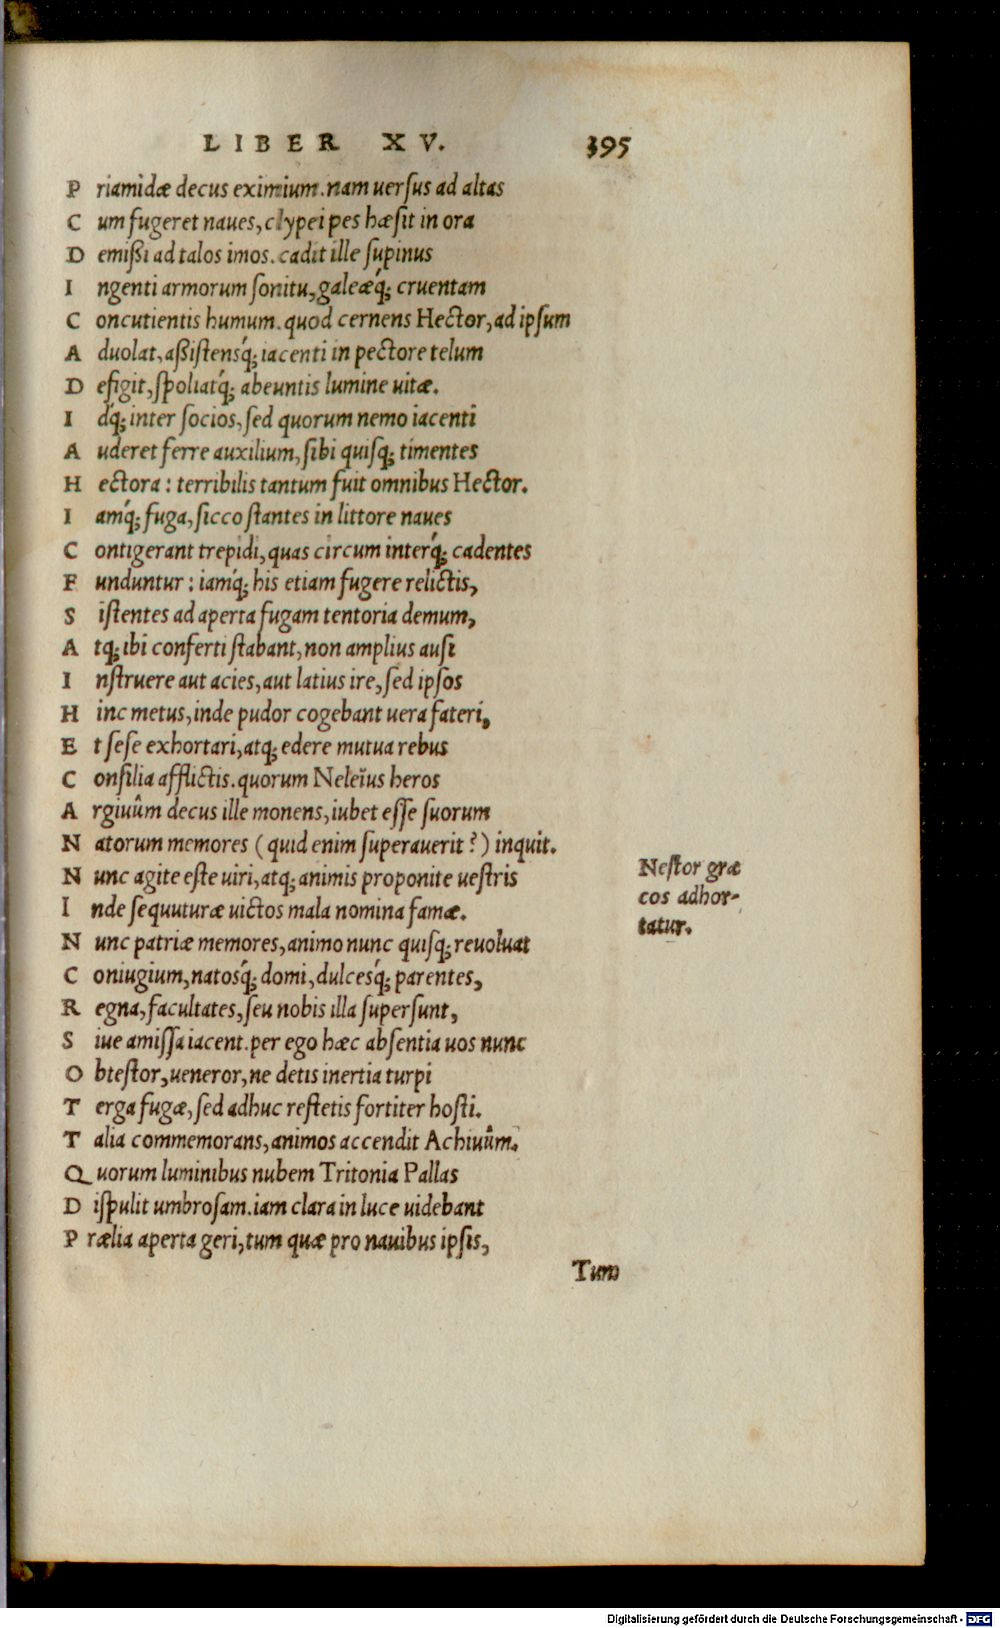 LIBER XV. 395
Priamidæ decus eximium. nam uersus ad altas
Cum fugeret naues, clypei pes hæsit in ora
Demißi ad talos imos. cadit ille supinus
Ingenti armorum sonitu, galeæq́; cruentam
Concutientis humum. quod cernens Hector, ad ipsum
Aduolat, aßistensq́; iacenti in pectore telum
Defigit, spoliatq́; abeuntis lumine uitæ.
Idq́; inter socios, sed quorum nemo iacenti
Auderet ferre auxilium, sibi quisq; timentes
Hectora: terribilis tantum fuit omnibus Hector.
Iamq́; fuga, sicco stantes in littore naues
Contigerant trepidi, quas circum interq́; cadentes
Funduntur: iamq́; his etiam fugere relictis,
Sistentes ad aperta fugam tentoria demum,
Atq; ibi conferti stabant, non amplius ausi
Instruere aut acies, aut latius ire, sed ipsos
Hinc metus, inde pudor cogebant uera fateri,
Et sese exhortari, atq; edere mutua rebus
Consilia afflictis. quorum Neleïus heros
Argiuûm decus ille monens, iubet esse suorum
Natorum memores (quid enim superauerit?) inquit.
Nunc agite este uiri, atq; animis proponite uestris
Inde sequuturæ uictos mala nomina famæ.
Nunc patriæ memores, animo nunc quisq; reuoluat
Coniugium, natosq́; domi, dulcesq́; parentes,
Regna, facultates, seu nobis illa supersunt,
Siue amissa iacent. per ego hæc absentia uos nunc
Obtestor, ueneror, ne detis inertia turpi
Terga fugæ, sed adhuc restetis fortiter hosti.
Talia commemorans, animos accendit Achiuûm.
Quorum luminibus nubem Tritonia Pallas
Dispulit umbrosam. iam clara in luce uidebant
Prælia aperta geri, tum quæ pro nauibus ipsis,
Tum
Nestor græ
cos adhor-
tatur.
Digitalisierung gefördert durch die Deutsche Forschungsgemeinschaft - DFG